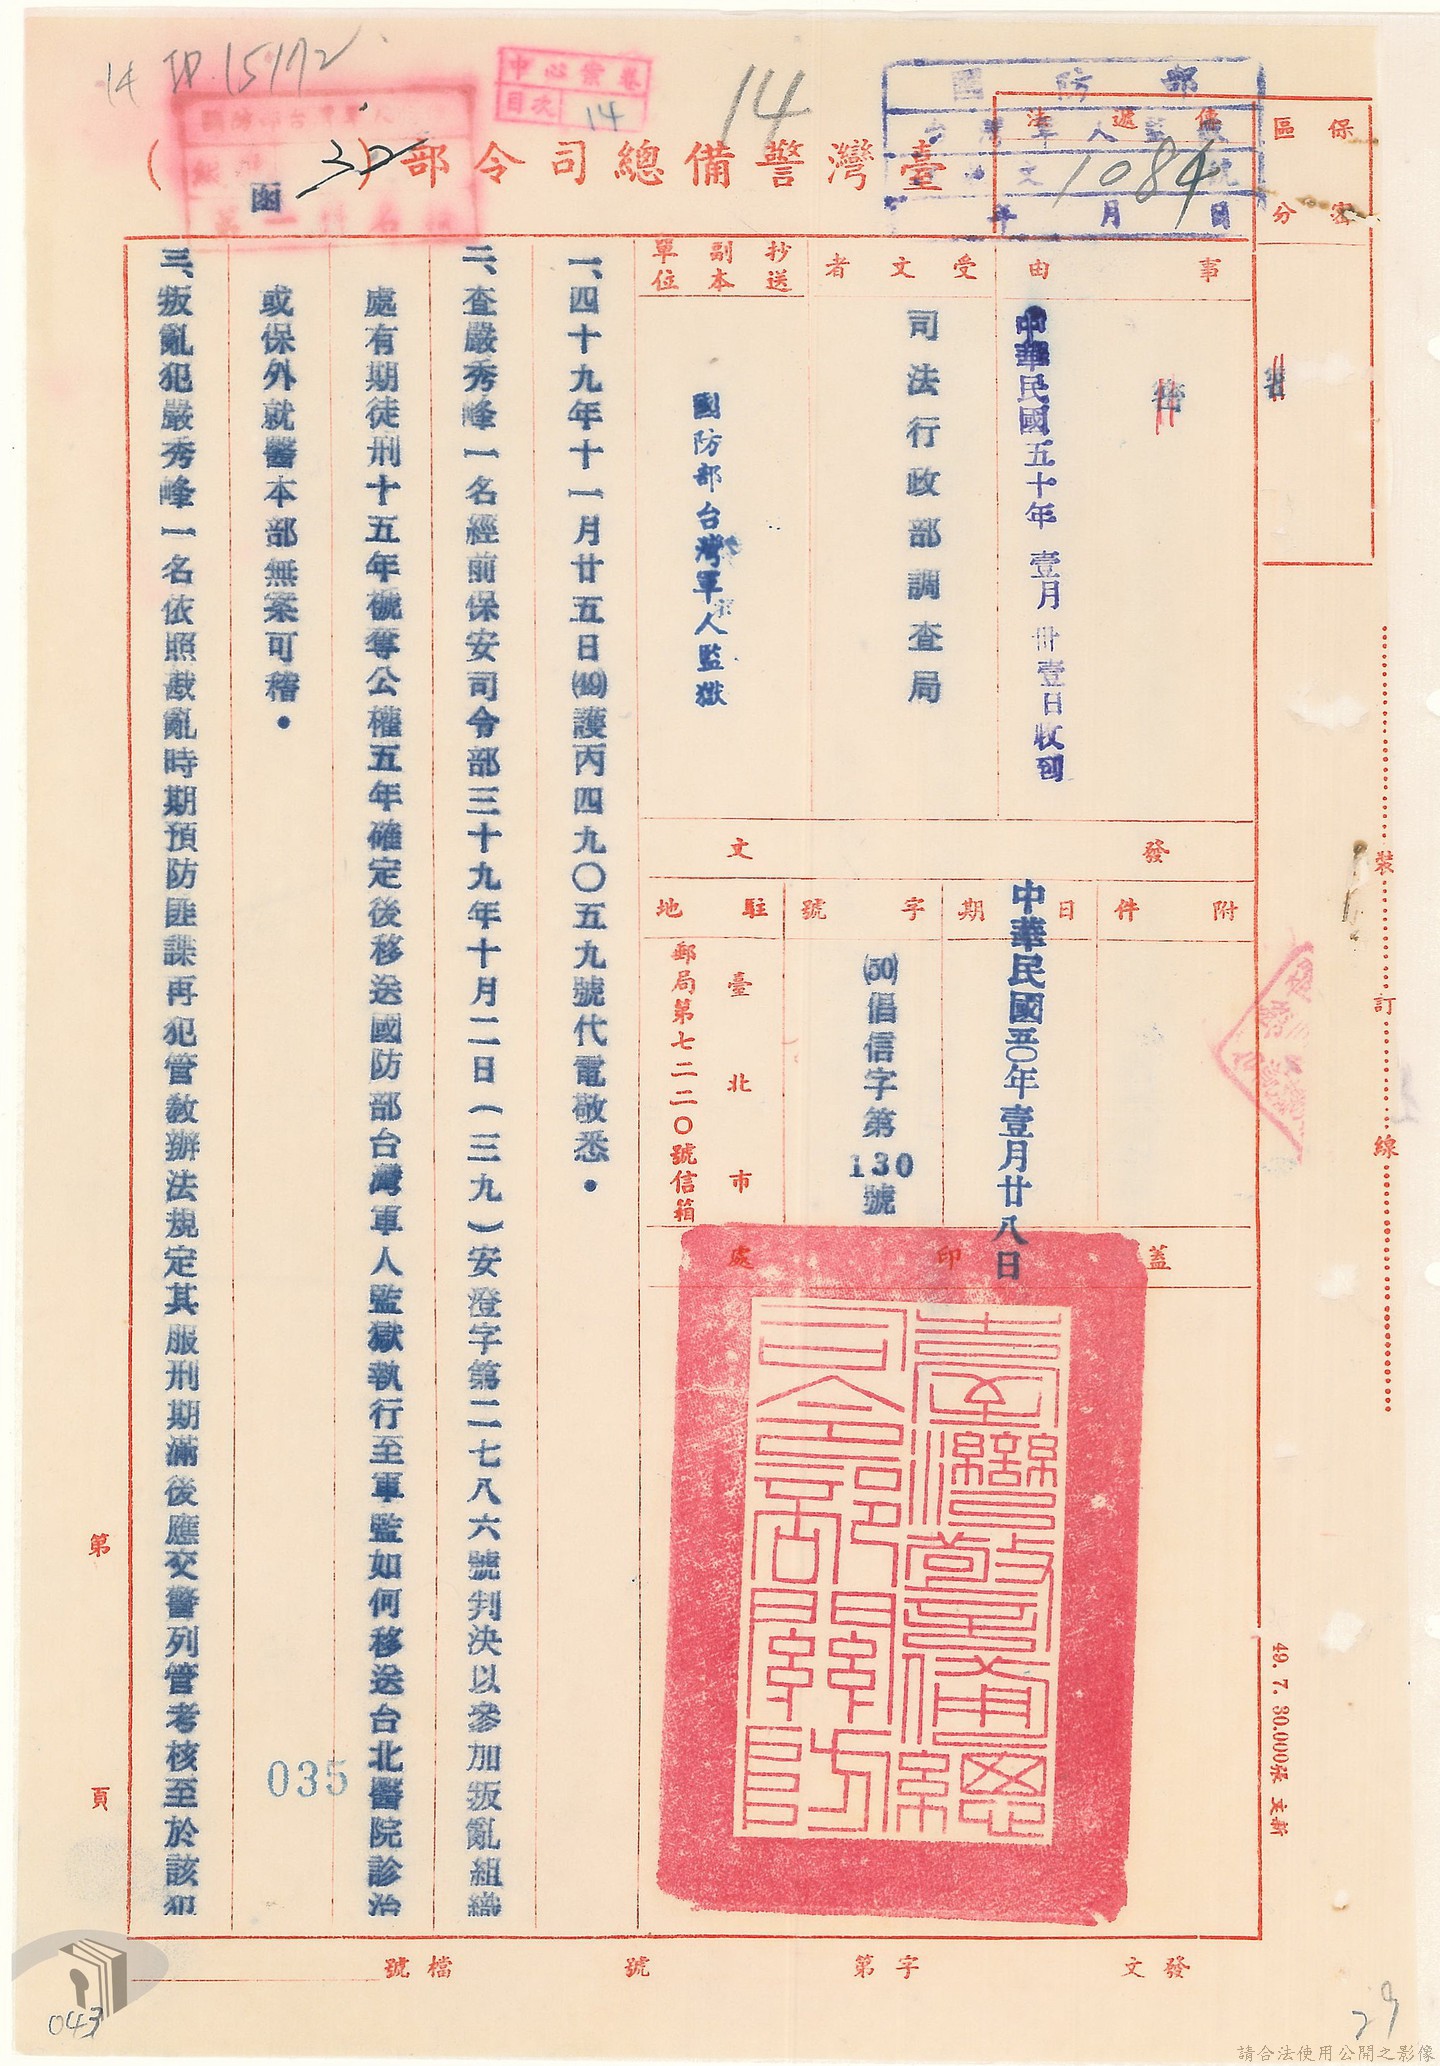 14
15172
中心案卷
目次
14
14
國防部
1084
年月日
臺灣警備總司令部（）函
保密
區分
事由
受文者
司法行政部調查局
抄送
副本
單位
國防部台灣軍人監獄
中華民國五十年壹月卅壹日收到
發文
附件
日期
中華民國五〇年壹月廿八日
字號
(50)倡信字第130號
駐地
臺北市
郵局第七二二〇號信箱
蓋印處
臺灣警備總司令部關防
一、四十九年十一月廿五日(49)護丙四九〇五九號代電敬悉。
二、查嚴秀峰一名經前保安司令部三十九年十月二日（三九）安澄字第二七八六號判決以參加叛亂組織
處有期徒刑十五年褫奪公權五年確定後移送國防部台灣軍人監獄執行至軍監如何移送台北醫院診治
或保外就醫本部無案可稽。
三、叛亂犯嚴秀峰一名依照戡亂時期預防匪諜再犯管教辦法規定其服刑期滿後應交警列管考核至於該犯
裝
訂
線
49. 7. 30.000張
第頁
035
發文字第號
檔號
043
29
請合法使用公開之影像